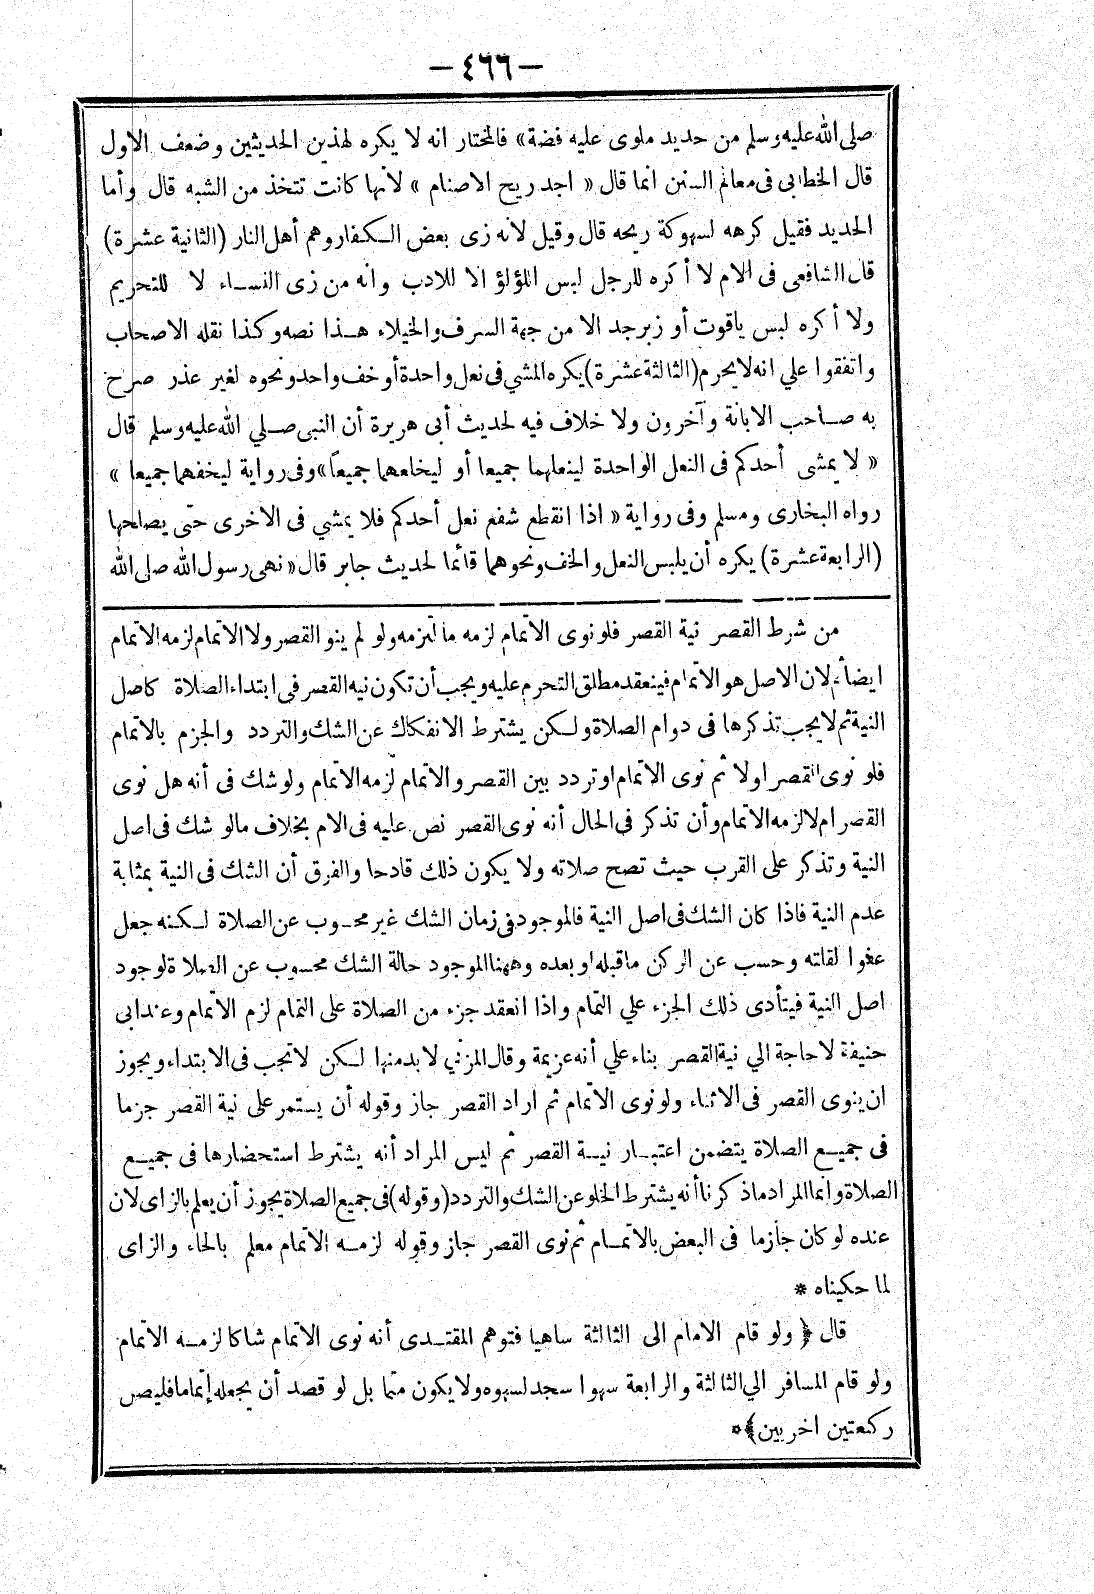 — ٤٦٦ —
صلى الله عليه وسلم من حديد ملوى عليه فضة» فالمختار انه لا يكره لهذين الحديثين وضعف الاول
قال الخطابى فى معالم السنن انما قال « اجد ريح الاصنام » لانها كانت تتخذ من الشبه قال وأما
الحديد فقيل كرهه لسهوكة ريحه قال وقيل لانه زى بعض الكفار وهم أهل النار (الثانية عشرة)
قال الشافعى فى الام لا أكره للرجل لبس اللؤلؤ الا للادب وانه من زى النساء لا للتحريم
ولا أكره لبس ياقوت أو زبرجد الا من جهة السرف والخيلاء هذا نصه وكذا نقله الاصحاب
واتفقوا علي انه لا يحرم (الثالثة عشرة) يكره المشي فى نعل واحدة أو خف واحد ونحوه لغير عذر صرح
به صاحب الابانة وآخرون ولا خلاف فيه لحديث أبى هريرة أن النبى صلي الله عليه وسلم قال
« لا يمشى أحدكم فى النعل الواحدة لينعلهما جميعا أو ليخلعهما جميعاً» وفى رواية ليخفهما جميعا »
رواه البخارى ومسلم وفى رواية « اذا انقطع شفع نعل أحدكم فلا يمشي فى الاخرى حتى يصلحها
(الرابعة عشرة) يكره أن يلبس النعل والخف ونحوهما قائما لحديث جابر قال « نهى رسول الله صلى الله
من شرط القصر نية القصر فلو نوى الاتمام لزمه ما التزمه ولو لم ينو القصر ولا الاتمام لزمه الاتمام
ايضاً لان الاصل هو الاتمام فينعقد مطلق التحرم عليه ويجب أن تكون نيه القصر فى ابتداء الصلاة كاصل
النية ثم لا يجب تذكرها فى دوام الصلاة ولكن يشترط الانفكاك عن الشك والتردد والجزم بالاتمام
فلو نوى القصر اولا ثم نوى الاتمام او تردد بين القصر والاتمام لزمه الاتمام ولو شك فى أنه هل نوى
القصر ام لا لزمه الاتمام وأن تذكر فى الحال أنه نوى القصر نص عليه فى الام بخلاف مالو شك فى اصل
النية وتذكر على القرب حيث تصح صلاته ولا يكون ذلك قادحا والفرق أن الشك فى النية بمثابة
عدم النية فاذا كان الشك فى اصل النية فالموجود فى زمان الشك غير محسوب عن الصلاة لكنه جعل
عفوا لقلته وحسب عن الركن ماقبله او بعده وههنا الموجود حالة الشك محسوب عن الصلاة لوجود
اصل النية فيتأدى ذلك الجزء علي التمام واذا انعقد جزء من الصلاة على التمام لزم الاتمام وعند ابى
حنيفة لا حاجة الي نية القصر بناء علي أنه عزيمة وقال المزني لا بد منها لكن لا تجب فى الابتداء ويجوز
ان ينوى القصر فى الاثناء ولو نوى الاتمام ثم اراد القصر جاز وقوله أن يستمر على نية القصر جزما
فى جميع الصلاة يتضمن اعتبار نية القصر ثم ليس المراد أنه يشترط استحضارها فى جميع
الصلاة وانما المراد ما ذكرنا أنه يشترط الخلو عن الشك والتردد (وقوله) فى جميع الصلاة يجوز أن يعلم بالزاى لان
عنده لو كان جازما فى البعض بالاتمام ثم نوى القصر جاز وقوله لزمه الاتمام معلم بالحاء والزاى
لما حكيناه *
قال ﴿ ولو قام الامام الى الثالثة ساهيا فتوهم المقتدى أنه نوى الاتمام شاكا لزمه الاتمام
ولو قام المسافر الي الثالثة والرابعة سهوا سجد لسهوه ولا يكون متما بل لو قصد أن يجعله إتماما فليصل
ركعتين اخريين ﴾ *